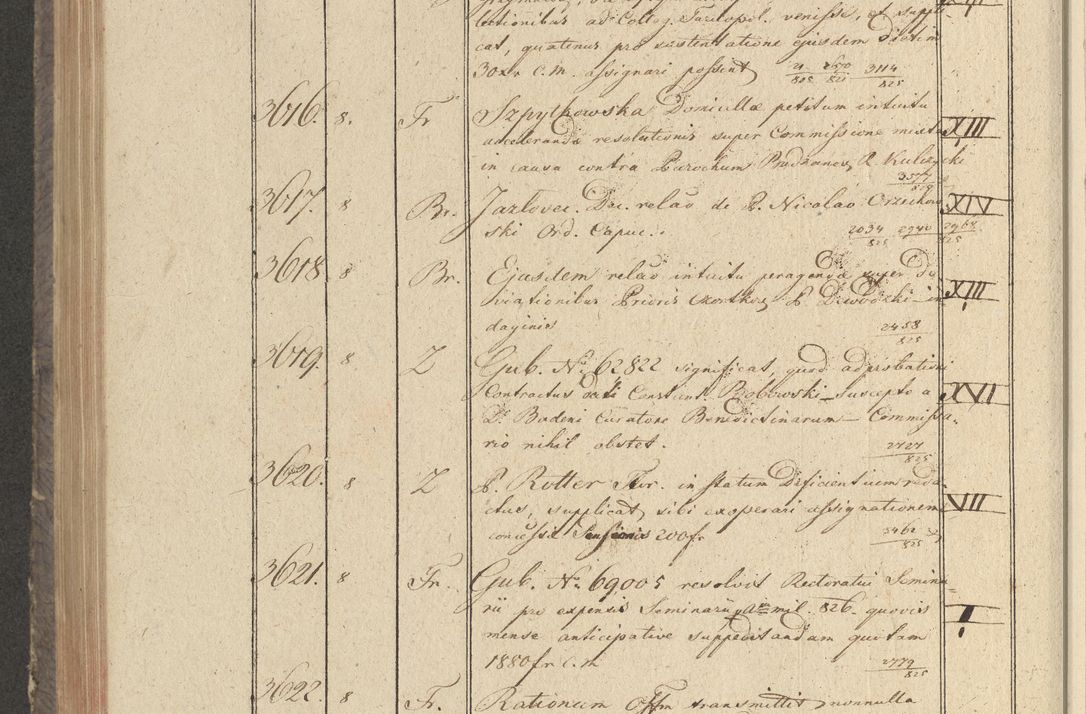 lectionibus ad Colleg. Tarnopol. venisse, et suppli-
cat, quatenus pro sustentatione ejusdem diatim
30xr C.M. assignari possent 21/825 2670/825 3114/825
3616. 8. Fr Szpytkowska Domicella petitum intuitu
accelerandæ resolutionis super Commissione mixta XIII
in causa contra Parochum Budzanov, R. Kulczycki
3577/825
3617. 8 Br. Jazlovec. Dec. relatio de P. Nicolao Orzechow XIV
ski Ord. Capuc. 2034/825 2940 2967/825
3618 8 Br. Ejusdem relatio intuitu peragendæ super De
viationibus Prioris P. in XIII
daginis 2458/825
3619. 8 Z Gub. No. 62822 significat, quod adprobationi
Contractus dati Constant. Bobowski suscepto a XVI
D. Badeni Curatore Benedictinarum Commissa-
rio nihil obstet. 2727/825
3620. 8 Z P. Rotter Fior. in statum Deficientium reda-
ctus, supplicat, sibi exoperari assignationem VII
concessæ Pensionis 200fr 3462/825
3621. 8 Fr. Gub. No. 69005 resolvit Rectoratui Semina
rii pro expensis Seminarii mil. 826. quovis I
mense anticipative suppeditandam quotam
1880fr C.M 2779/825
3622. 8 Fr. Rationum Offm transmittit nonnulla